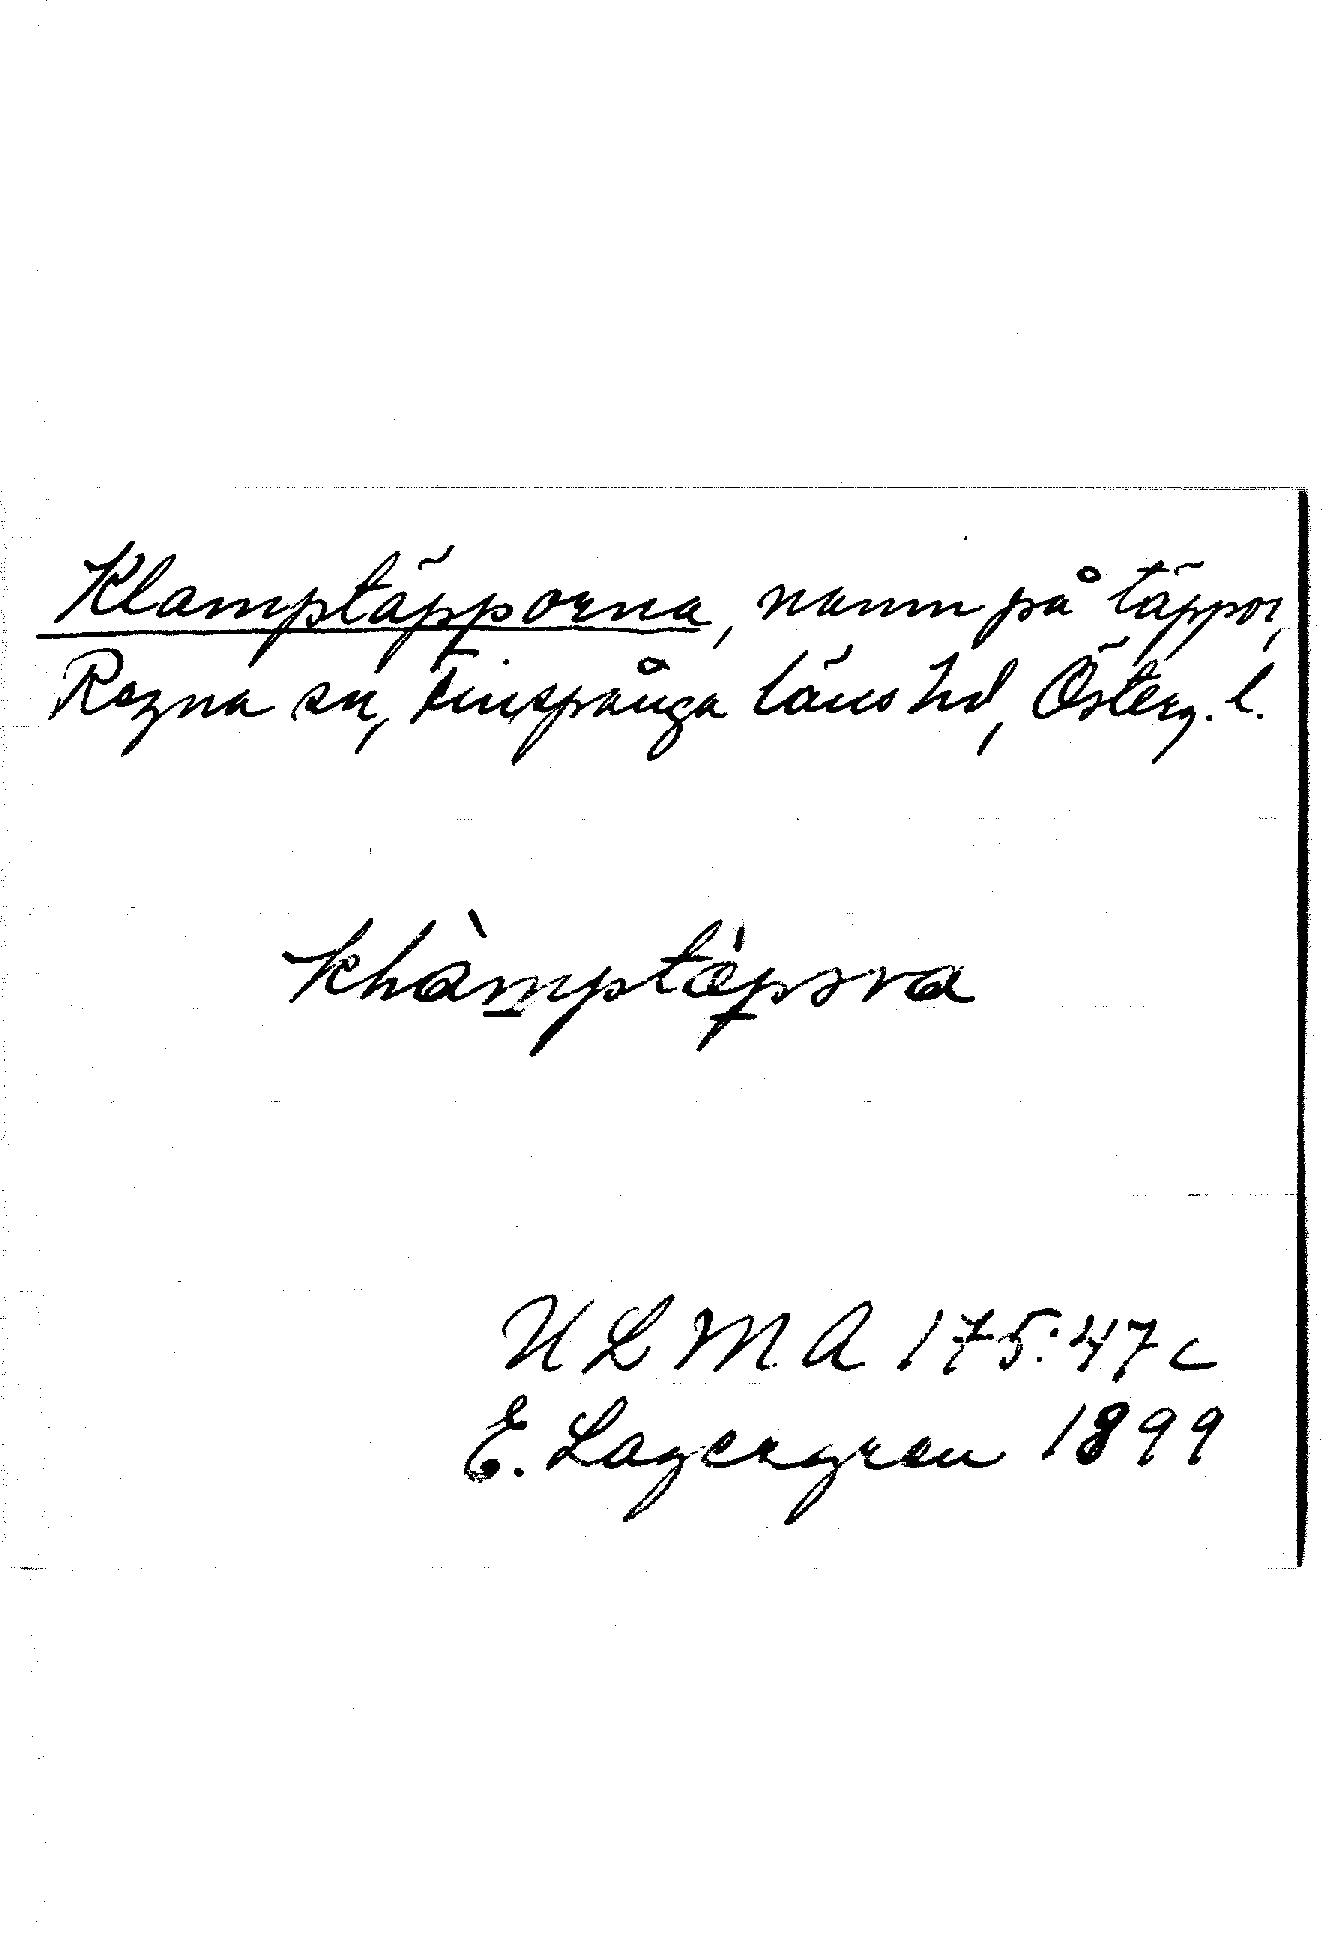 Klamptäpporna, namn på täppor,
Regna sn, Finspånga läns hd, Österg. l.
ULMA 175:47c
E. Lagergren 1899